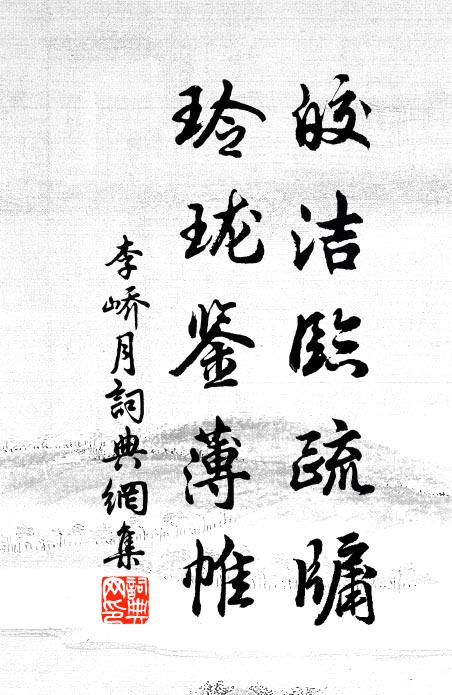 皎洁臨疏牖
玲珑鉴薄帷
李嶠月詞典網集
詞典网印